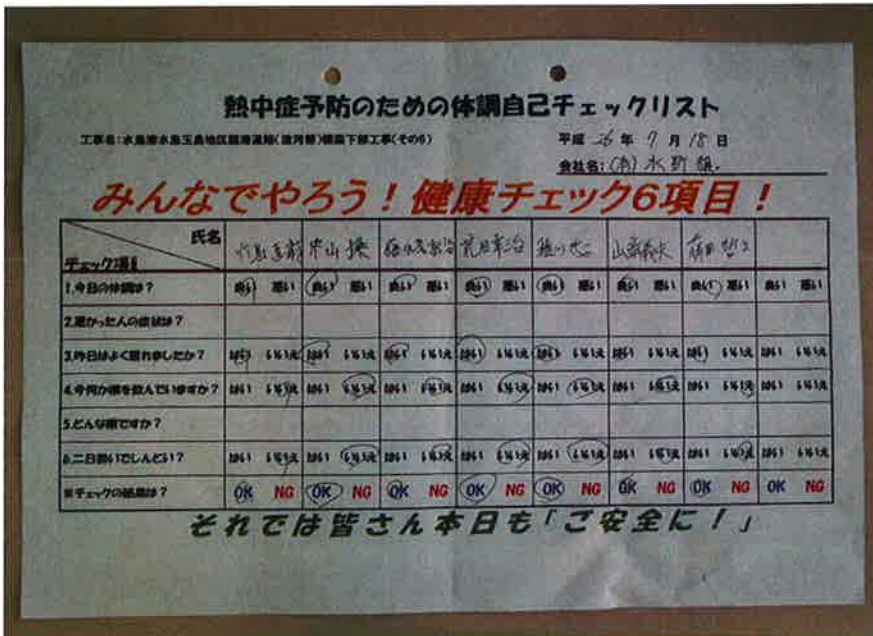 熱中症予防のための体調自己チェックリスト
工事名:水島港水島玉島地区臨港道路(渡河部)橋梁下部工事(その6)
平成 26 年 7 月 18 日
会社名: (有)水野組
みんなでやろう!健康チェック6項目!
氏名
チェック項目
中山 操
1.今日の体調は? 良い 悪い 良い 悪い 良い 悪い 良い 悪い 良い 悪い 良い 悪い 良い 悪い 良い 悪い
2.悪かったんの症状は?
3.昨日はよく眠れましたか? はい いいえ はい いいえ はい いいえ はい いいえ はい いいえ はい いいえ はい いいえ はい いいえ
4.今何か薬を飲んでいますか? はい いいえ はい いいえ はい いいえ はい いいえ はい いいえ はい いいえ はい いいえ はい いいえ
5.どんな薬ですか?
6.二日酔いでしんどい? はい いいえ はい いいえ はい いいえ はい いいえ はい いいえ はい いいえ はい いいえ はい いいえ
※チェックの結果は? OK NG OK NG OK NG OK NG OK NG OK NG OK NG OK NG
それでは皆さん本日も「ご安全に!」